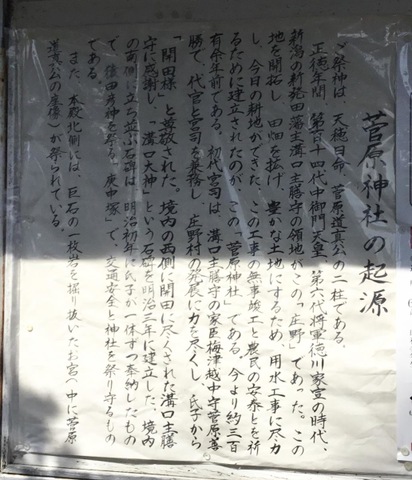 菅原神社の起源
〆祭神は、天穂日命、菅原道真公の二柱である。
正徳年間、第百十四代中御門天皇、第六代将軍徳川家宣の時代、
新潟の新発田藩主溝口主膳守の領地がこの「庄野」であった。この
地を開拓し、田畑を拡げ、豊かな土地にするため、用水工事に尽力
し、今日の耕地ができた。この工事の無事竣工と農民の安泰とを祈
るために建立されたのが、この「菅原神社」である。今より約三百
有余年前である。初代宮司は、溝口主膳守の家臣梅津越中守菅原善
勝で、代官と宮司を兼務し、庄野村の発展に力を尽くし、氏子から
「開田様」と尊敬された。境内の西側に開田に尽くされた溝口主膳
守に感謝し、「溝口大神」という石碑を明治三年に建立した。境内
の南側に立ち並ぶ石碑は、明治初年に氏子が一体ずつ奉納したもの
で、猿田彦神を祭る「庚申塚」で、交通安全と神社を祭り守るもの
である。
また、本殿北側には、巨石の一枚岩を掘り抜いたお宮（中に菅原
道真公の座像）が祭られている。